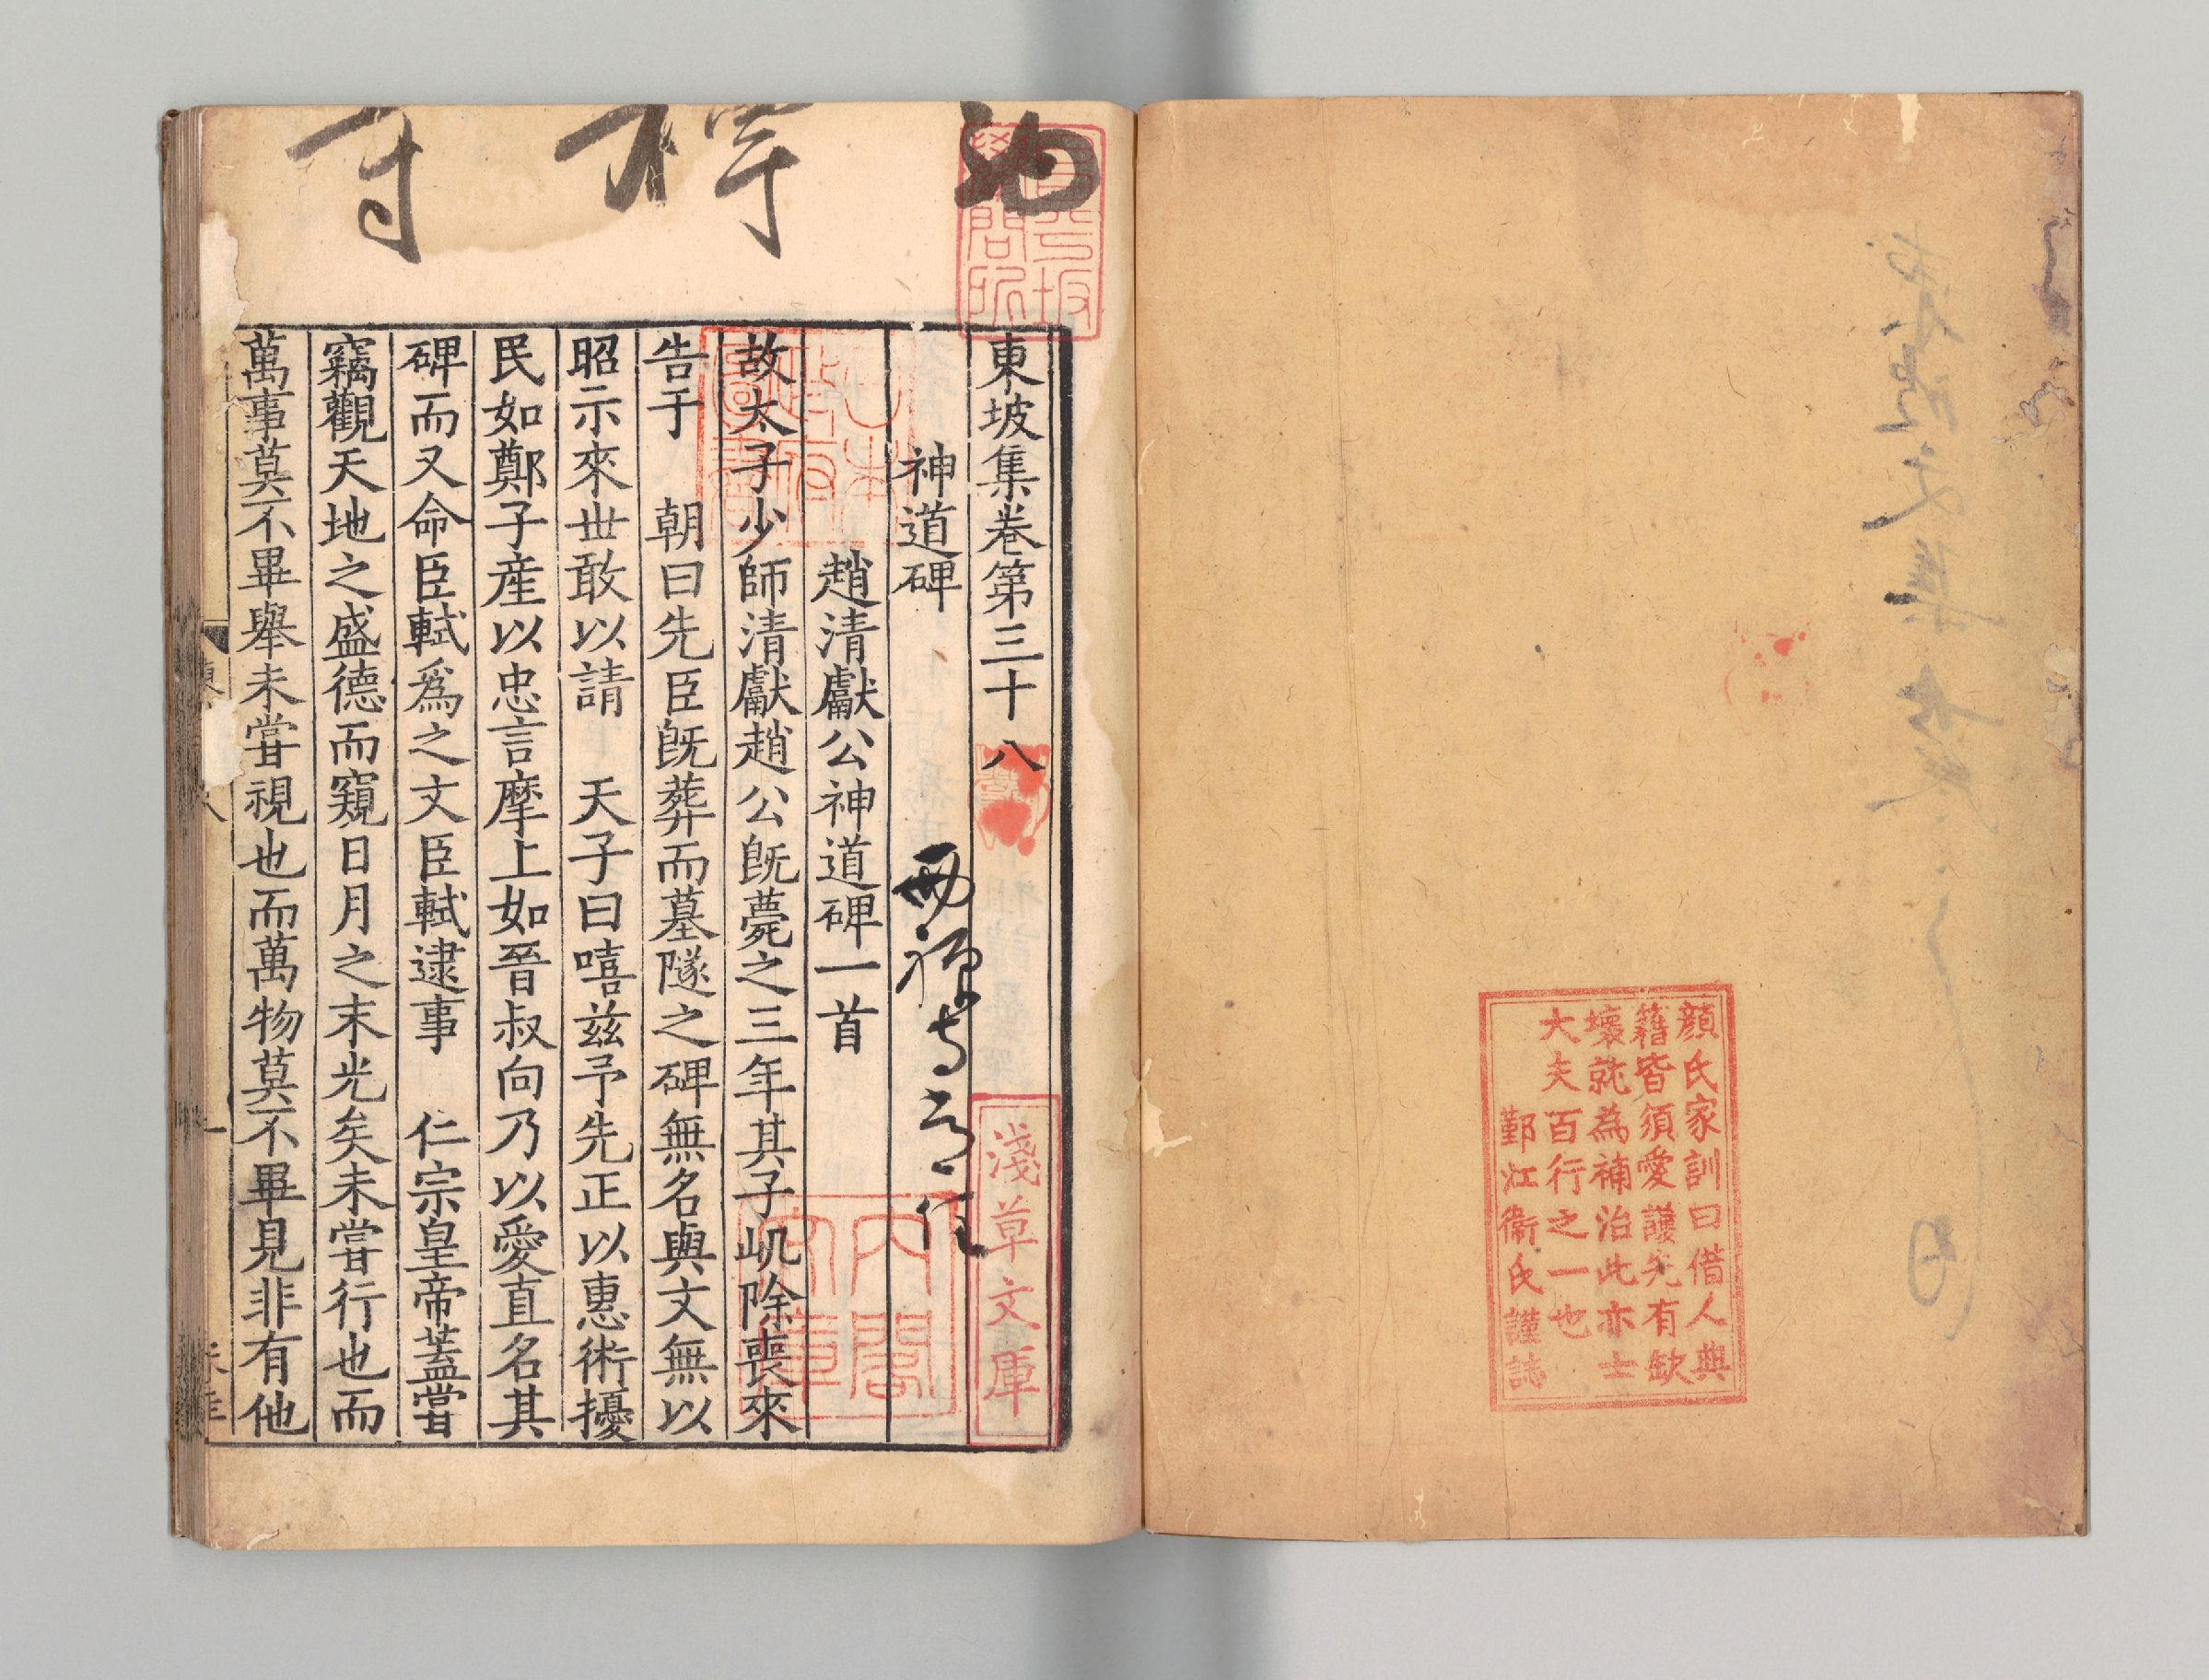 顔氏家訓曰借人典
籍皆須愛護先有缺
壊就為補治此亦士
大夫百行之一也
鄞江衞氏謹誌
東坡集卷第三十八
神道碑
趙清獻公神道碑一首
故太子少師清獻趙公旣薨之三年其子屼除喪來
告于 朝曰先臣旣葬而墓隧之碑無名與文無以
昭示來世敢以請 天子曰嘻兹予先正以惠術擾
民如鄭子產以忠言摩上如晉叔向乃以愛直名其
碑而又命臣軾爲之文臣軾逮事 仁宗皇帝蓋嘗
竊觀天地之盛德而窺日月之末光矣未嘗行也而
萬事莫不畢舉未嘗視也而萬物莫不畢見非有他
淺草文庫
内閣文庫
昌平坂學問所